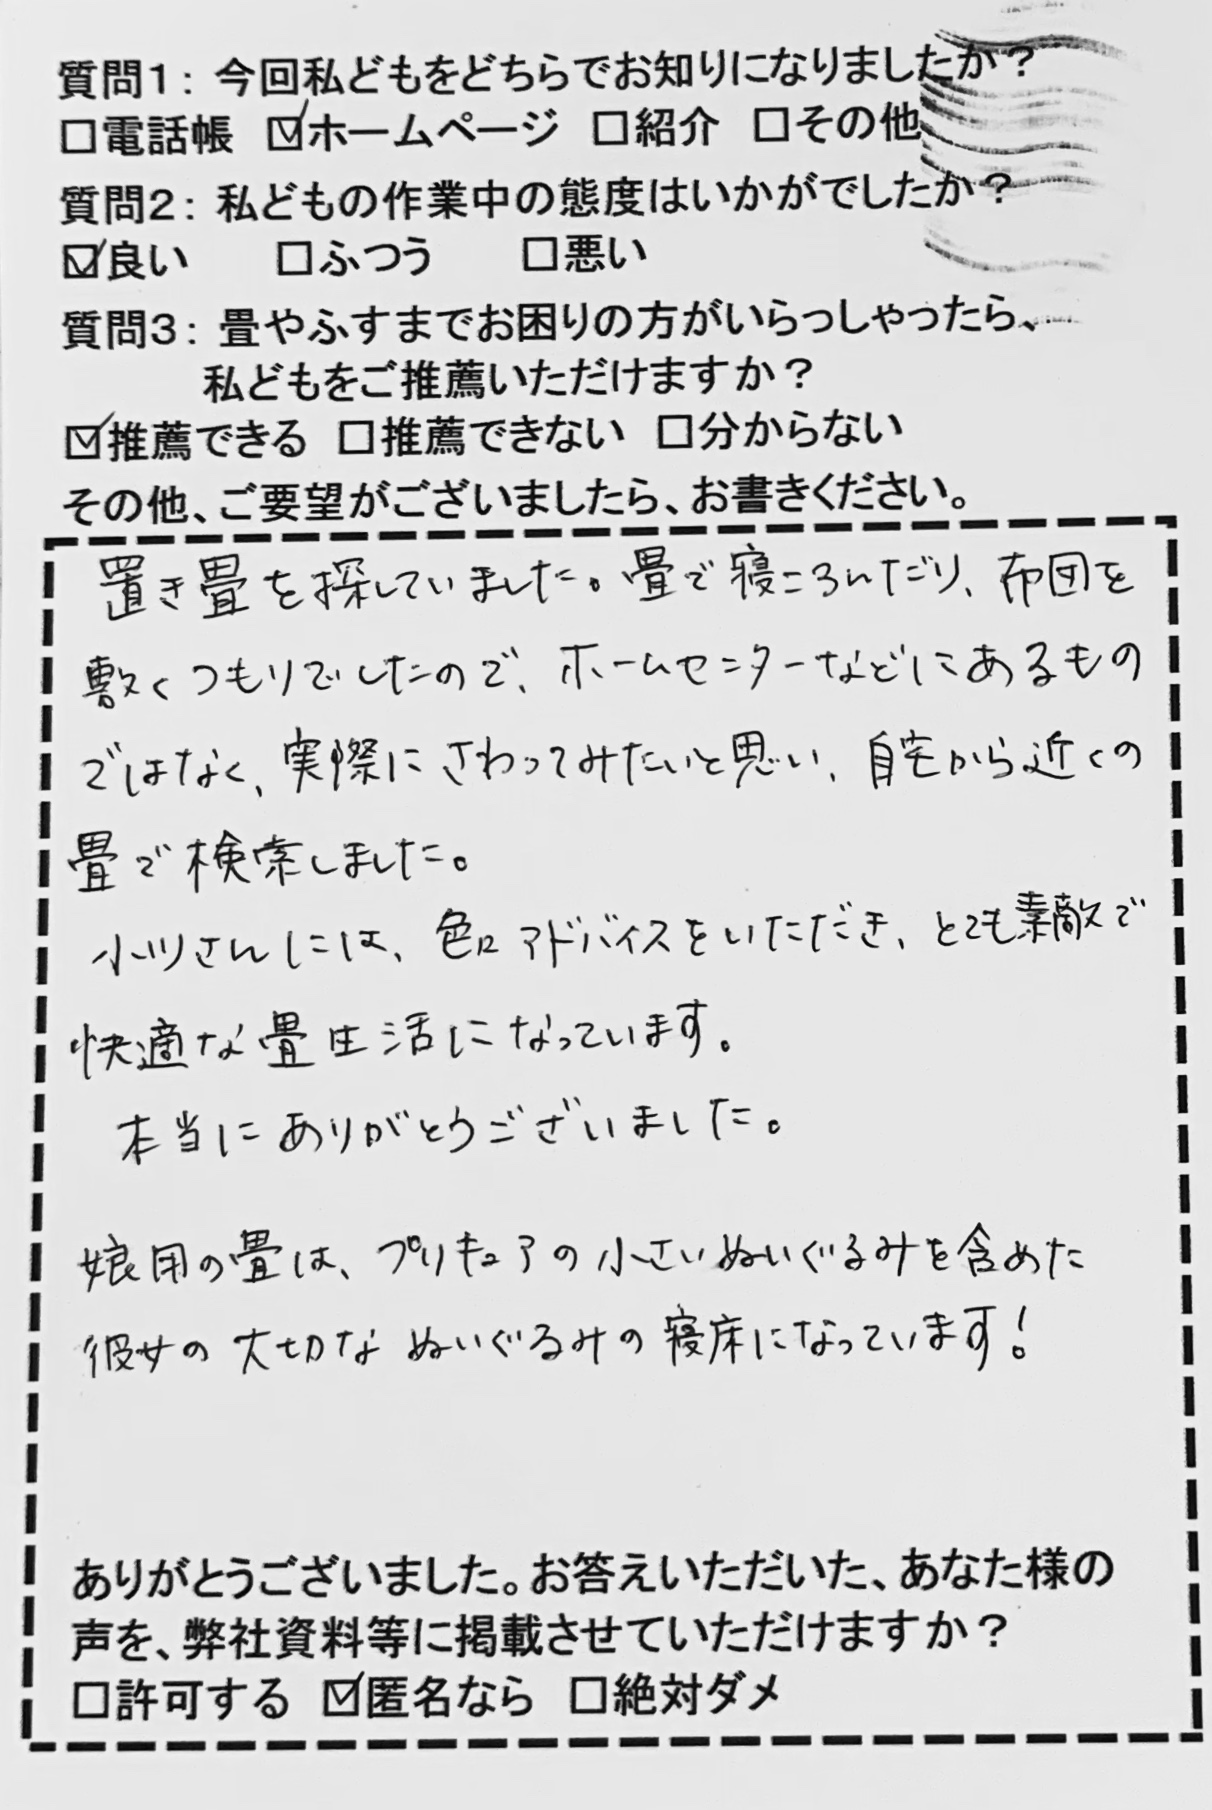 質問1：今回私どもをどちらでお知りになりましたか？
□電話帳 ☑ホームページ □紹介 □その他
質問2：私どもの作業中の態度はいかがでしたか？
☑良い □ふつう □悪い
質問3：畳やふすまでお困りの方がいらっしゃったら、
私どもをご推薦いただけますか？
☑推薦できる □推薦できない □分からない
その他、ご要望がございましたら、お書きください。
置き畳を探していました。畳で寝ころんだり、布団を
敷くつもりでしたので、ホームセンターなどにあるもの
ではなく、実際にさわってみたいと思い、自宅から近くの
畳で検索しました。
小川さんには、色々アドバイスをいただき、とても素敵で
快適な畳生活になっています。
本当にありがとうございました。
娘用の畳は、プリキュアの小さいぬいぐるみを含めた
彼女の大切なぬいぐるみの寝床になっています！
ありがとうございました。お答えいただいた、あなた様の
声を、弊社資料等に掲載させていただけますか？
□許可する ☑匿名なら □絶対ダメ